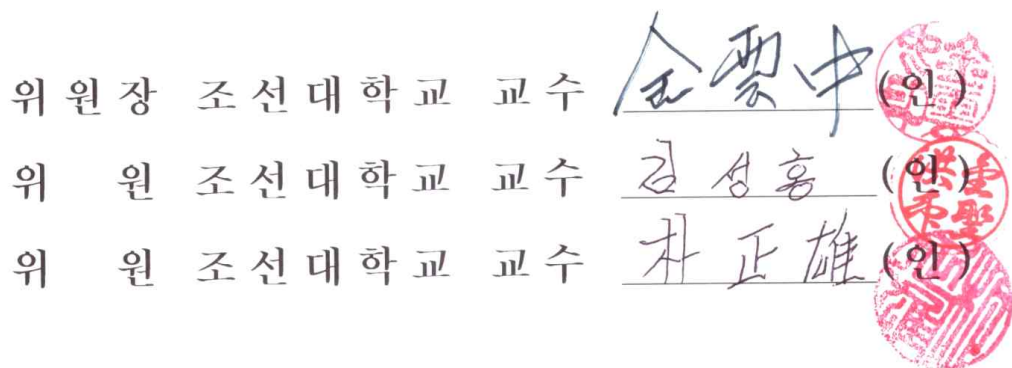 위원장 조선대학교 교수 金雲中 (인)
위 원 조선대학교 교수 김성홍 (인)
위 원 조선대학교 교수 朴正雄 (인)